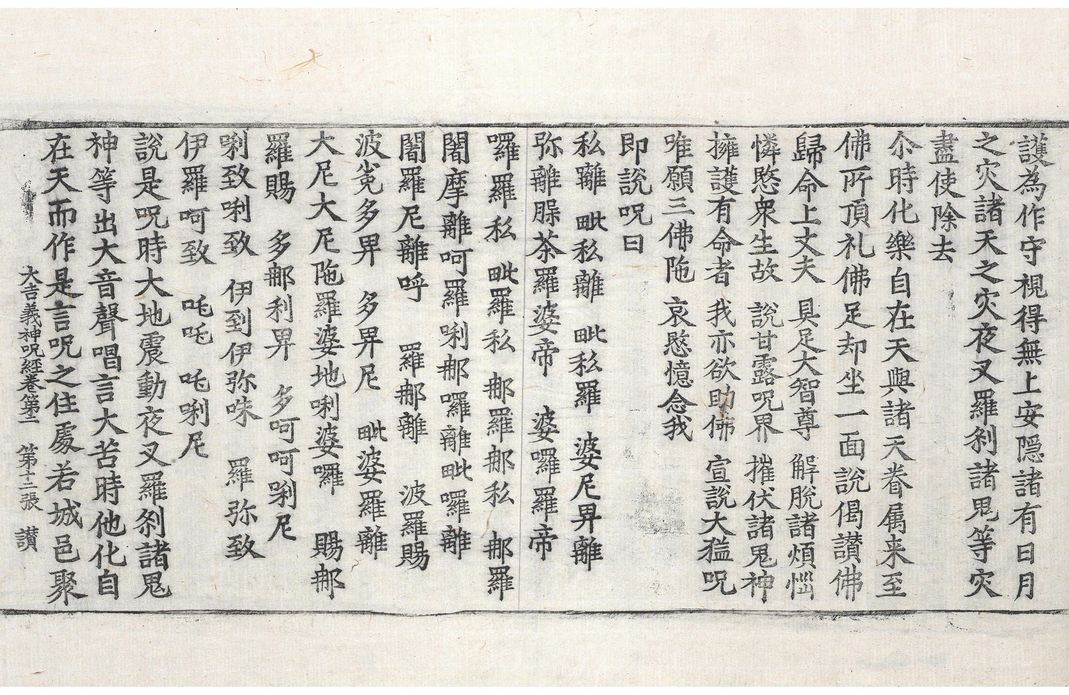 護為作守視得無上安隱諸有日月
之灾諸天之灾夜叉羅刹諸鬼等灾
盡使除去
尒時化樂自在天與諸天眷属来至
佛所頂礼佛足却坐一面說偈讃佛
歸命上丈夫 具足大智尊 解脫諸煩惱
憐愍衆生故 說甘露呪界 摧伏諸鬼神
擁護有命者 我亦欲助佛 宣說大猛呪
唯願三佛陁 哀愍憶念我
即說呪曰
私離 毗私離 毗私羅 婆尼畀離
弥離脲茶羅婆帝 婆囉羅帝
囉羅私 毗羅私 郍羅郍私 郍羅
閣摩離呵羅唎郍囉離毗囉離
閣羅尼離呼 羅郍離 波羅賜
波㝹多畀 多畀尼 毗婆羅離
大尼大尼陁羅婆地唎婆囉 賜郍
羅賜 多郍利畀 多呵呵唎尼
唎致唎致 伊到伊弥咮 羅弥致
伊羅呵致 吒吒 吒唎尼
說是呪時大地震動夜叉羅刹諸鬼
神等出大音聲唱言大苦時他化自
在天而作是言呪之住處若城邑聚
大吉義神呪經卷第二 第十二張 讃